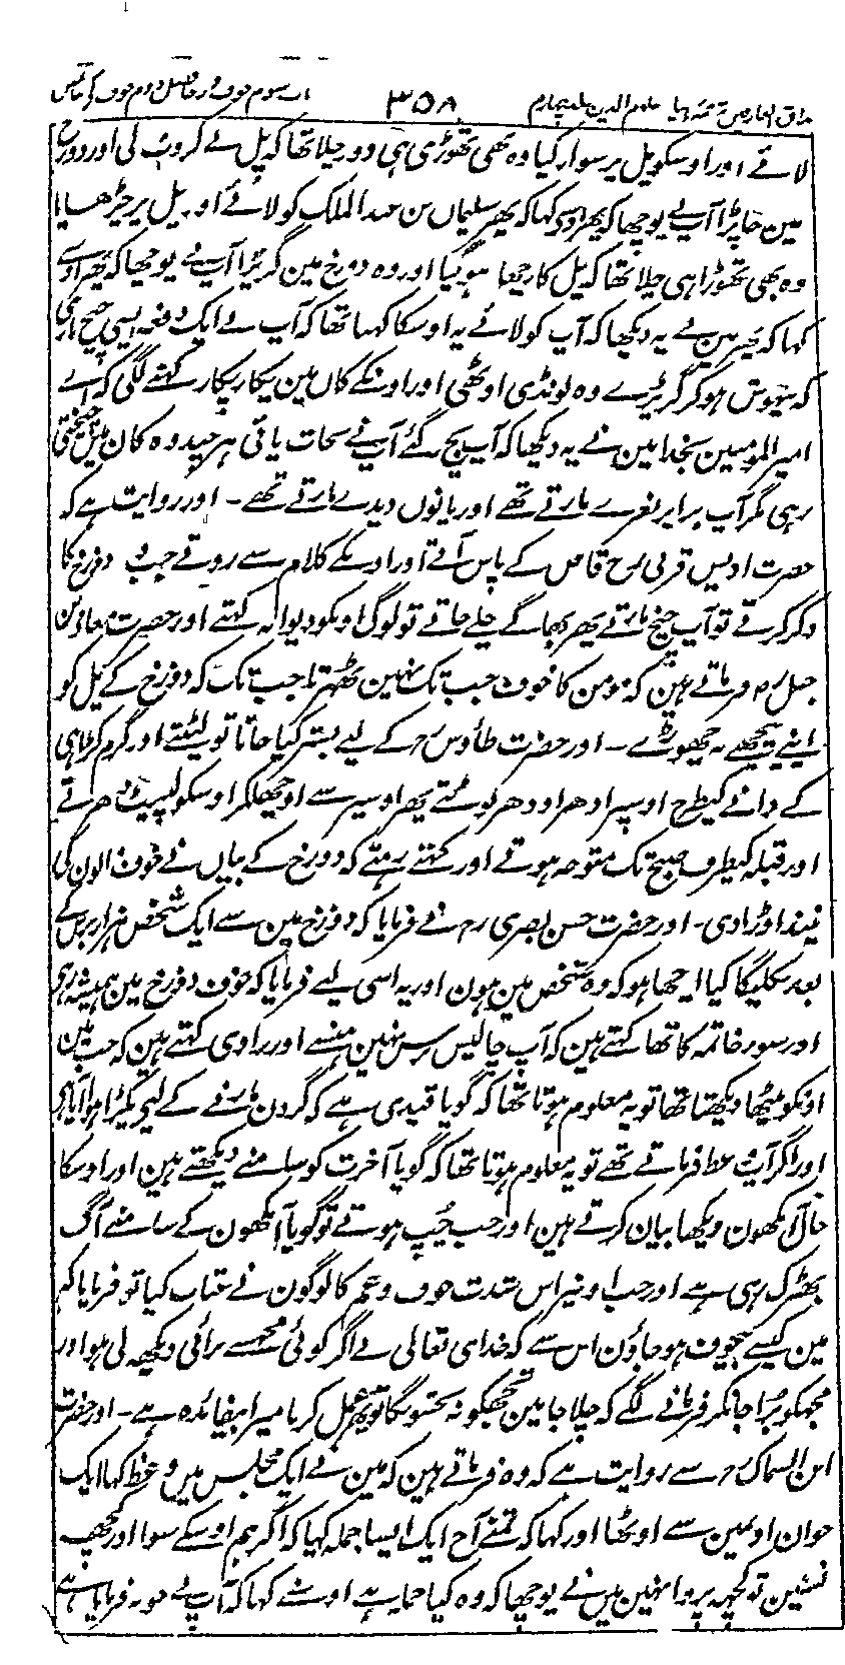 مذاق العارفین ترجمہ احیاء علوم الدین جلد چہارم
۳۵۸
باب سوم خوف و رجا فصل دوم خوف کی
لائے اور اوسکو پل پر سوار کیا وہ بھی تھوڑی ہی دور چلا تھا کہ پل نے کروٹ لی اور دوزخ
مین جا پڑا آپ نے پوچھا کہ پھر اوس نے کہا کہ پھر سلیمان بن عبد الملک کو لائے اور پل پر چڑھایا
وہ بھی تھوڑا ہی چلا تھا کہ پل کا رجعا ہو گیا اور وہ دوزخ مین گر پڑا آپ نے پوچھا کہ پھر اوسے
کہا کہ پھر مین نے یہ دیکھا کہ آپ کو لائے یہ اوسکا کہنا تھا کہ آپ نے ایک دفعہ ایسی چیخ ماری
کہ بیہوش ہو کر گر پڑے وہ لونڈی اوٹھی اور اونکے کان مین پکار پکار کہنے لگی کہ اے
امیر المومنین بخدا مین نے یہ دیکھا کہ آپ بچ گئے آپ نے نجات پائی ہر چند وہ کان مین چیختی
رہی مگر آپ برابر نعرے مارتے تھے اور پانوں دیدے مارتے تھے - اور روایت ہے کہ
حضرت اویس قرنی رح قاص کے پاس آتے اور اوسکے کلام سے روتے جب وہ دوزخ کا
ذکر کرتے تو آپ چیخ مارتے پھر بھاگے چلے جاتے تو لوگ اونکو دیوانہ کہتے اور حضرت معاذ بن
جبل رض فرماتے ہین کہ مومن کا خوف جب تک نہین ٹھہرتا جب تک کہ دوزخ کے پل کو
اپنے پیچھے نہ چھوڑے - اور حضرت طاؤس رح کے لیے بستر کیا جاتا تو لیٹتے اور گرم کڑاہی
کے دانے کیطرح اوسپر ادھر اودھر لوٹتے پھر اوسپر سے اوچھلکر اوسکو لپیٹ دھرتے
اور قبلہ کیطرف صبح تک متوجہ ہوتے اور کہتے رہتے کہ دوزخ کے بیان نے خوف والون کی
نیند اوڑا دی - اور حضرت حسن بصری رح نے فرمایا کہ دوزخ مین سے ایک شخص ہزار برس کے
بعد نکلیگا کیا اچھا ہو کہ وہ شخص مین ہون اور یہ اسی لیے فرمایا کہ خوف دوزخ مین ہمیشہ رہنے
اور سوء خاتمہ کا تھا کہتے ہین کہ آپ چالیس برس نہین ہنسے اور راوی کہتے ہین کہ جب مین
اونکو بیٹھا دیکھتا تھا تو یہ معلوم ہوتا تھا کہ گویا قیدی ہے کہ گردن مارنے کے لیے پکڑا ہوا آیا ہی
اور اگر آپ وعظ فرماتے تھے تو یہ معلوم ہوتا تھا کہ گویا آخرت کو سامنے دیکھتے ہین اور اوسکا
حال آنکھون دیکھا بیان کرتے ہین اور جب چُپ ہوتے تو گویا آنکھون کے سامنے آگ
بھڑک رہی ہے اور جب اونپر اس شدت خوف و غم کا لوگون نے عتاب کیا تو فرمایا کہ
مین کیسے بیخوف ہو جاؤن اس سے کہ خدای تعالی نے اگر کوئی مجھسے برائی دیکھ لی ہو اور
مجھکو بُرا جانکر فرمانے لگے کہ چلا جا مین تجھکو نہ بخشونگا تو پھر عمل کرنا میرا بیفائدہ ہے - اور حضرت
ابن السماک رح سے روایت ہے کہ وہ فرماتے ہین کہ مین نے ایک مجلس مین وعظ کہا ایک
جوان اونمین سے اوٹھا اور کہا کہ تمنے آج ایک ایسا جملہ کہا کہ اگر ہم اوسکے سوا اور کچھ
نہ سنین تو کچھ پروا نہین مین نے پوچھا کہ وہ کیا جملہ ہے اوسنے کہا کہ آپ نے جو یہ فرمایا ہے